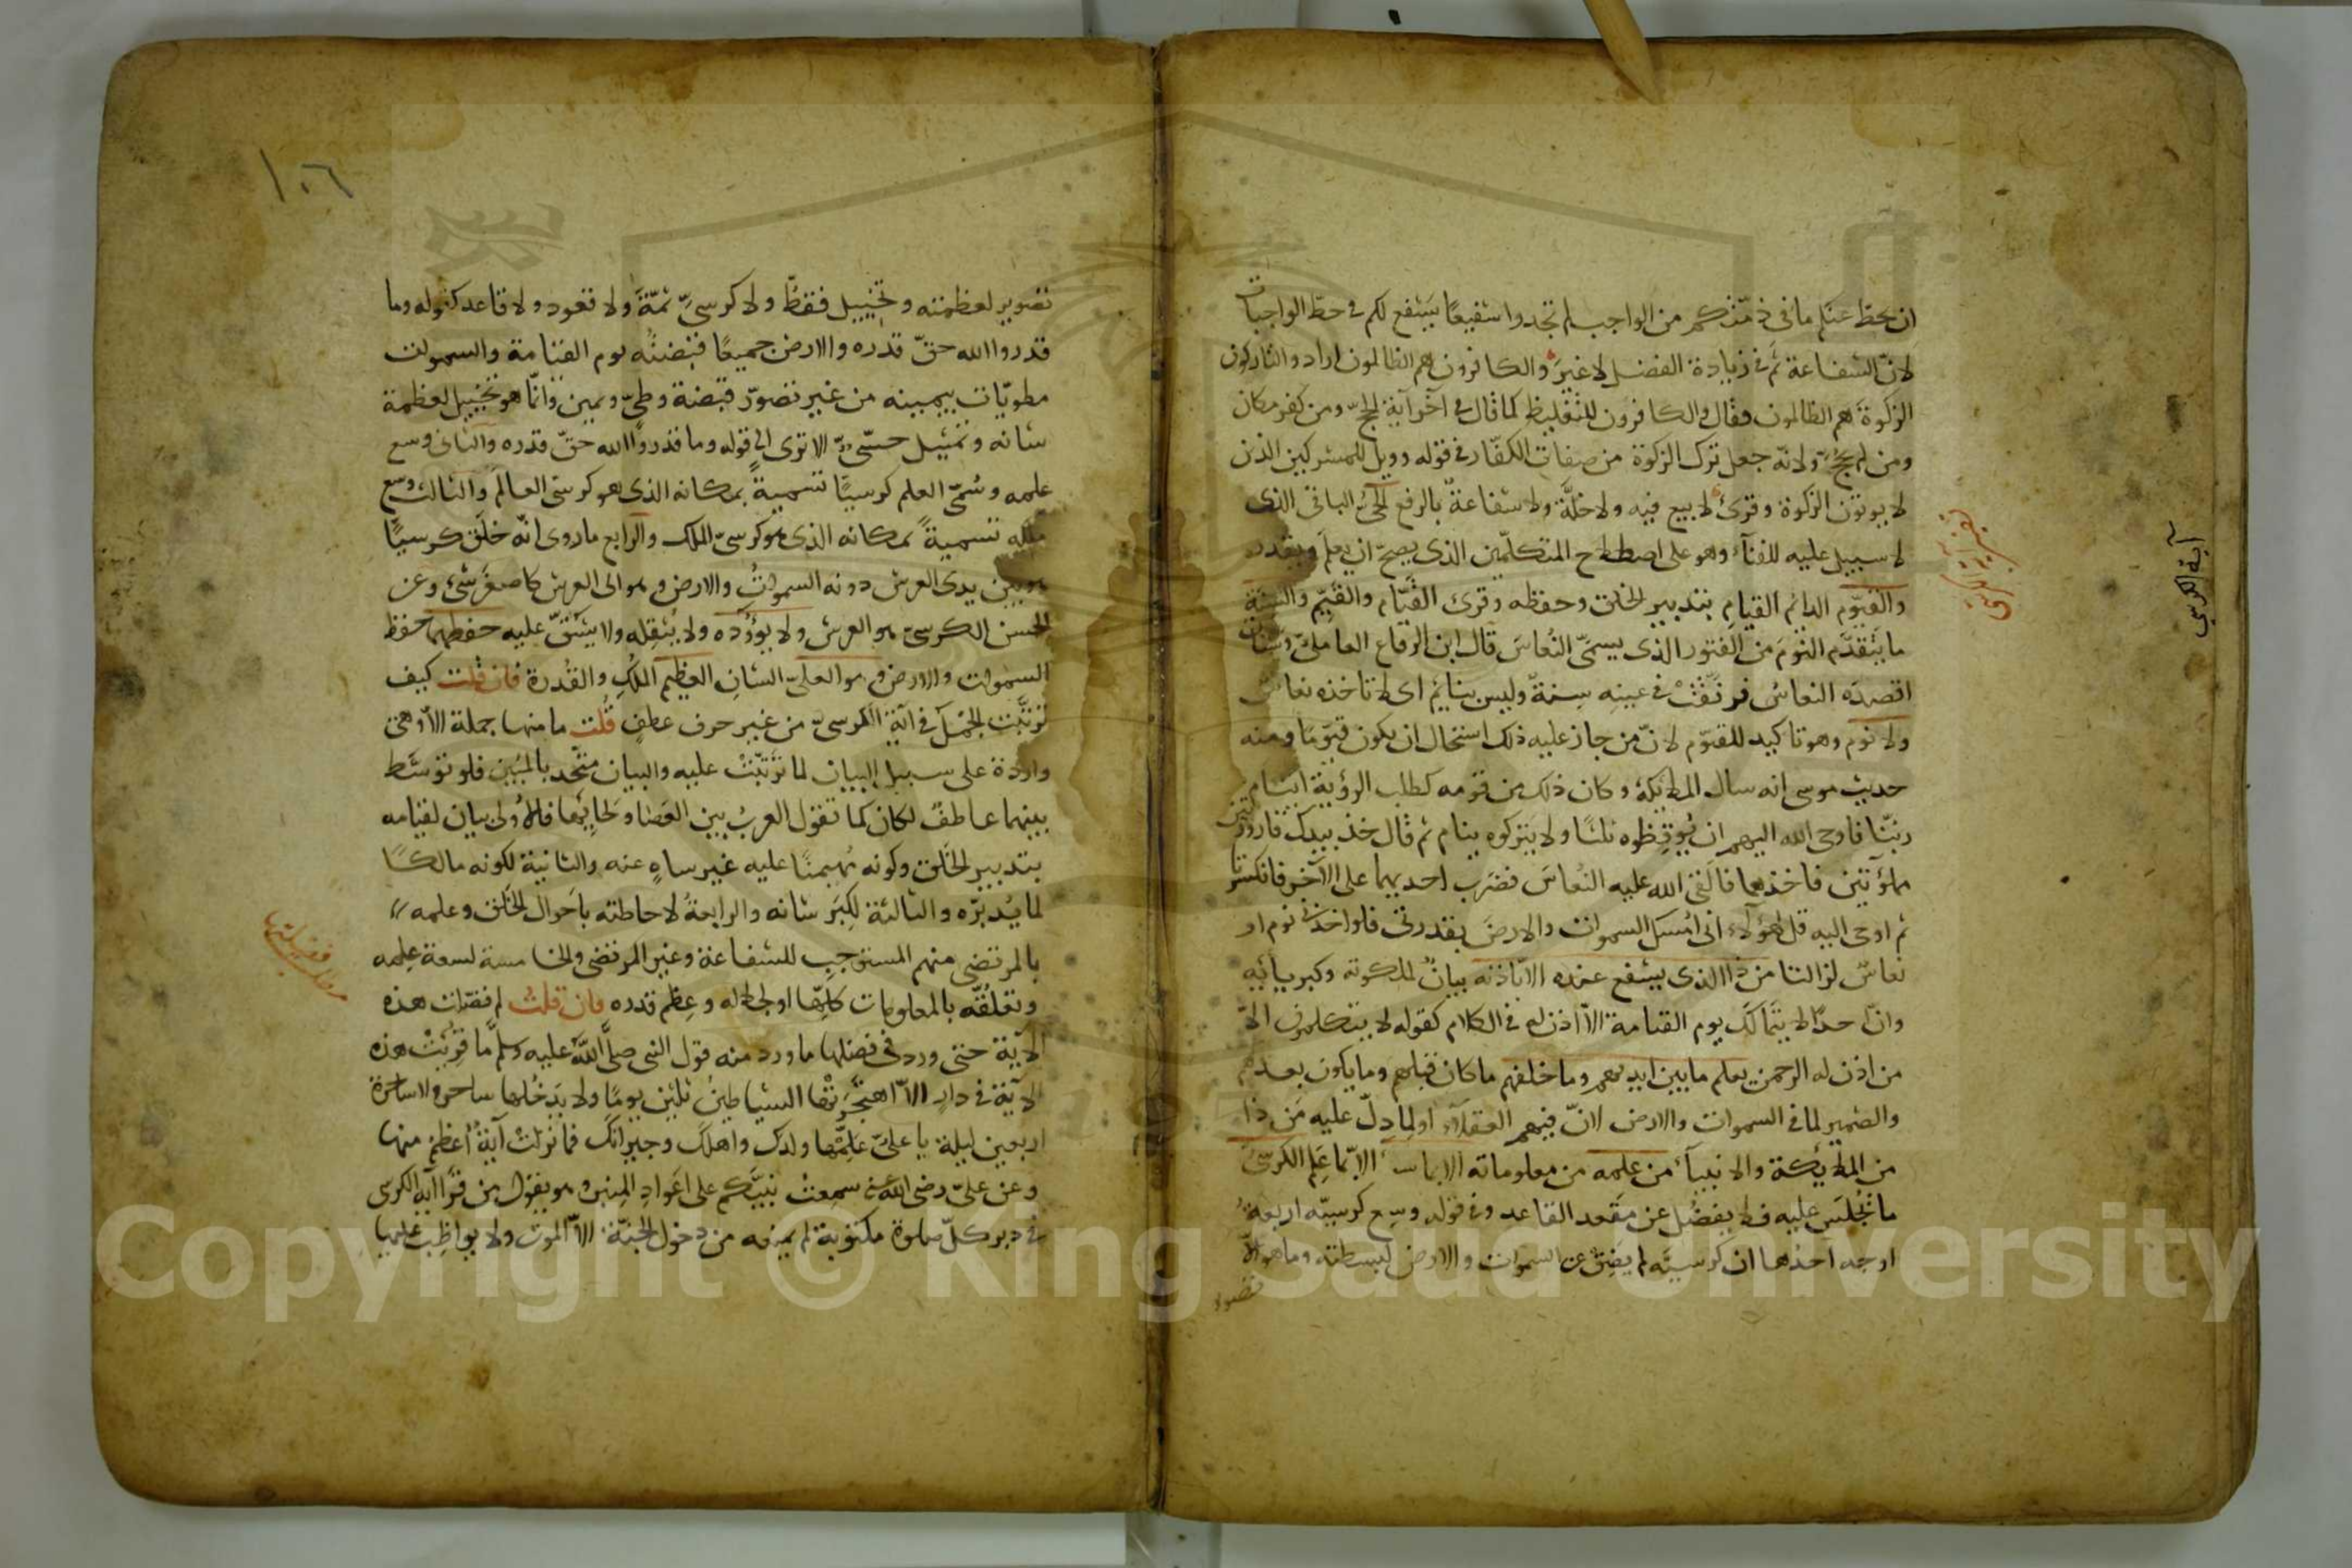 ان يحط عنكم ما فى ذمتكم من الواجب لم تجدوا شفيعًا يشفع لكم فى حط الواجبات
لانّ الشفاعة ثَم فى زيادة الفضل لا غير والكافرون هم الظالمون اراد والتاركون
الزكوة هم الظالمون فقال والكافرون للتغليظ كما قال فى آخر آية الحجّ ومن كفر مكان
ومن لم يحج ولانّه جعل ترك الزكوة من صفات الكفّار فى قوله وويل للمشركين الذين
لا يوتون الزكوة وقرئ لا بيع فيه ولا خلّة ولا شفاعة بالرفع الحىّ الباقى الذى
لا سبيل عليه للفنآء وهو على اصطلاح المتكلّمين الذى يصحّ ان يعلم ويقدر
والقيّوم الدائم القيام بتدبير الخلق وحفظه وقرئ القيّام والقيّم والسنة
ما يتقدّم النوم من الفتور الذى يسمّى النُعاس قال ابن الرقاع العاملىّ وسنان
اقصده النعاس فرنّقتْ فى عينه سِنةٌ وليس بنائم اى لا تاخذه نعاس
ولا نوم وهو تاكيد للقيّوم لانّ من جاز عليه ذلك استحال ان يكون قيّومًا ومنه
حديث موسى انه سال الملائكة وكان ذلك من قومه كطلب الرؤية اينام
ربّنا فاوحى الله اليهم ان يُوقِظوه ثلثًا ولا يتركوه ينام ثم قال خذ بيدك قارورتين
مملوّتين فاخذهما فالقى الله عليه النُعاس فضرب احديهما على الآخر فانكسرتا
ثم اوحى اليه قل لهؤلآء انى اُمسك السموات والارض بقدرتى فلو اخذنى نوم او
نعاسٌ لزالتا من ذا الذى يشفع عنده الا باذنه بيانٌ لملكوته وكبريائه
وانّ احدًا لا يتمالك يوم القيامة الّا اذن له فى الكلام كقوله لا يتكلمون الّا
من اذن له الرحمن يعلم ما بين ايديهم وما خلفهم ما كان قبلهم وما يكون بعدهم
والضمير لما فى السموات والارض لانّ فيهم العقلآء او لِما دلّ عليه مَن ذا
من الملائكة والانبيآء من علمه من معلوماته الا بما شآء الّا بما عَلِم الكرسىّ
ما يُجلَس عليه فلا يفضُل عن مَقعد القاعد وفى قوله وسِع كرسيّه اربعةُ
اوجه احدها ان كرسيّه لم يضِق عن السموات والارض لبسطته وما هو الّا
تصوير
تفسير آية الكرسى
آية الكرسى
١٠٦
تصوير لعظمته وتخييل فقطْ ولا كرسىَّ ثمّةَ ولا قعود ولا قاعد كقوله وما
قدروا الله حقّ قدره والارض جميعًا قبضتُه يوم القيامة والسموات
مطويّات بيمينه من غير تصوّر قبضة وطىّ ويمين وانّما هو تخييل لعظمة
شانه وتمثيل حسّىّ الا ترى الى قوله وما قدروا الله حقّ قدره والثانى وسع
علمه وسُمّى العلم كرسيًّا تسميةً بمكانه الذى هو كرسى العالَم والثالث وسع
ملكه تسميةً بمكانه الذى هو كرسىّ الملك والرابع ما روى انّه خلَق كرسيًّا
هو بين يدى العرش دونه السمواتُ والارض وهو الى العرش كاصغر شئ وعن
الحسن الكرسىّ هو العرش ولا يؤُدُه ولا يُثقِله ولا يشقّ عليه حفظهما حفظ
السموات والارض وهو العلىّ الشانِ العظيم المُلكِ والقُدرة فان قلت كيف
ترتّبت الجُمَل فى آية الكرسىّ من غير حرف عطفٍ قُلت ما منها جملة الّا وهى
واردة على سبيل البيان لما ترتّبتْ عليه والبيان متّحد بالمُبيَّن فلو توسّط
بينهما عاطفٌ لكان كما تقول العربُ بين العَصا ولِحائها فالاُولى بيان لقيامه
بتدبير الخَلق وكونه مُهيمنًا عليه غير ساهٍ عنه والثانية لكونه مالكًا
لما يُدبّره والثالثة لكِبَر شانه والرابعةُ لاحاطته باَحوال الخَلق وعلمه
بالمرتضى منهم المستوجب للشفاعة وغير المرتضى والخامسة لسعة عِلمه
وتعلُقه بالمعلومات كلِّها او لجلاله وعِظم قدره فان قلتُ لم فضّلت هذه
الآية حتى ورد فى فضلها ما ورد منه قول النبى صلى الله عليه وسلم ما قُرِئتْ هذه
الآية فى دارٍ الّا اهتجَرَتْها الشياطينُ ثلثين يومًا ولا يَدخُلها ساحر ولا ساحرة
اربعين ليلة يا علىّ علِّمها ولدك واهلَك وجيرانك فما نزلتْ آيةٌ اعظم منها
وعن علىّ رضى الله عنه سمعت نبيّكم على اعوادِ المِنبر وهو يقول من قرأ آية الكرسى
فى دبر كلّ صلوة مكتوبة لم يمنعه من دخول الجنّة الّا الموت ولا يواظب عليها
مطلب فضيلتها
Copyright © King Saud University